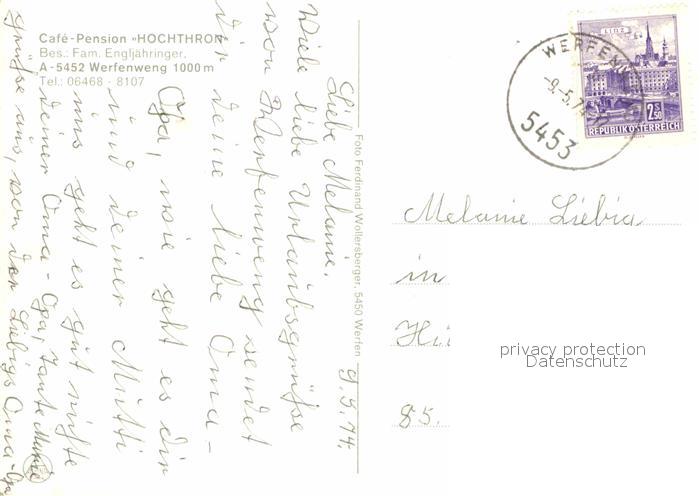 Café-Pension »HOCHTHRON«
Bes.: Fam. Engljähringer,
A-5452 Werfenweng 1000 m
Tel.: 06468 - 8107
9.5.74.
Liebe Melanie.
Viele liebe Urlaubsgrüße
von Werfenweng sendet
dir deine liebe Oma-
Opa, wie geht es dir
und deiner Mutti
uns geht es gut
deiner Oma - Opa, Tante
Grüße aus, von der Liebigs Oma-Opa
Foto Ferdinand Wollersberger, 5450 Werfen
LINZ
2.50
REPUBLIK ÖSTERREICH
WERFENWENG
-9.-5.74
5453
Melanie Liebig
in
85.
privacy protection
Datenschutz